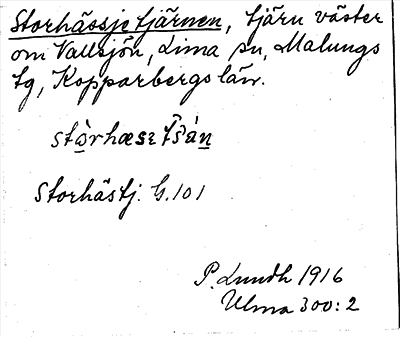 Storhässjetjärnen, tjärn väster
om Vallsjön, Lima sn, Malungs
tg, Kopparbergs län.
stòrhæsɛ tšán
Storhästj. G.101
P. Lundh 1916
Ulma 300:2